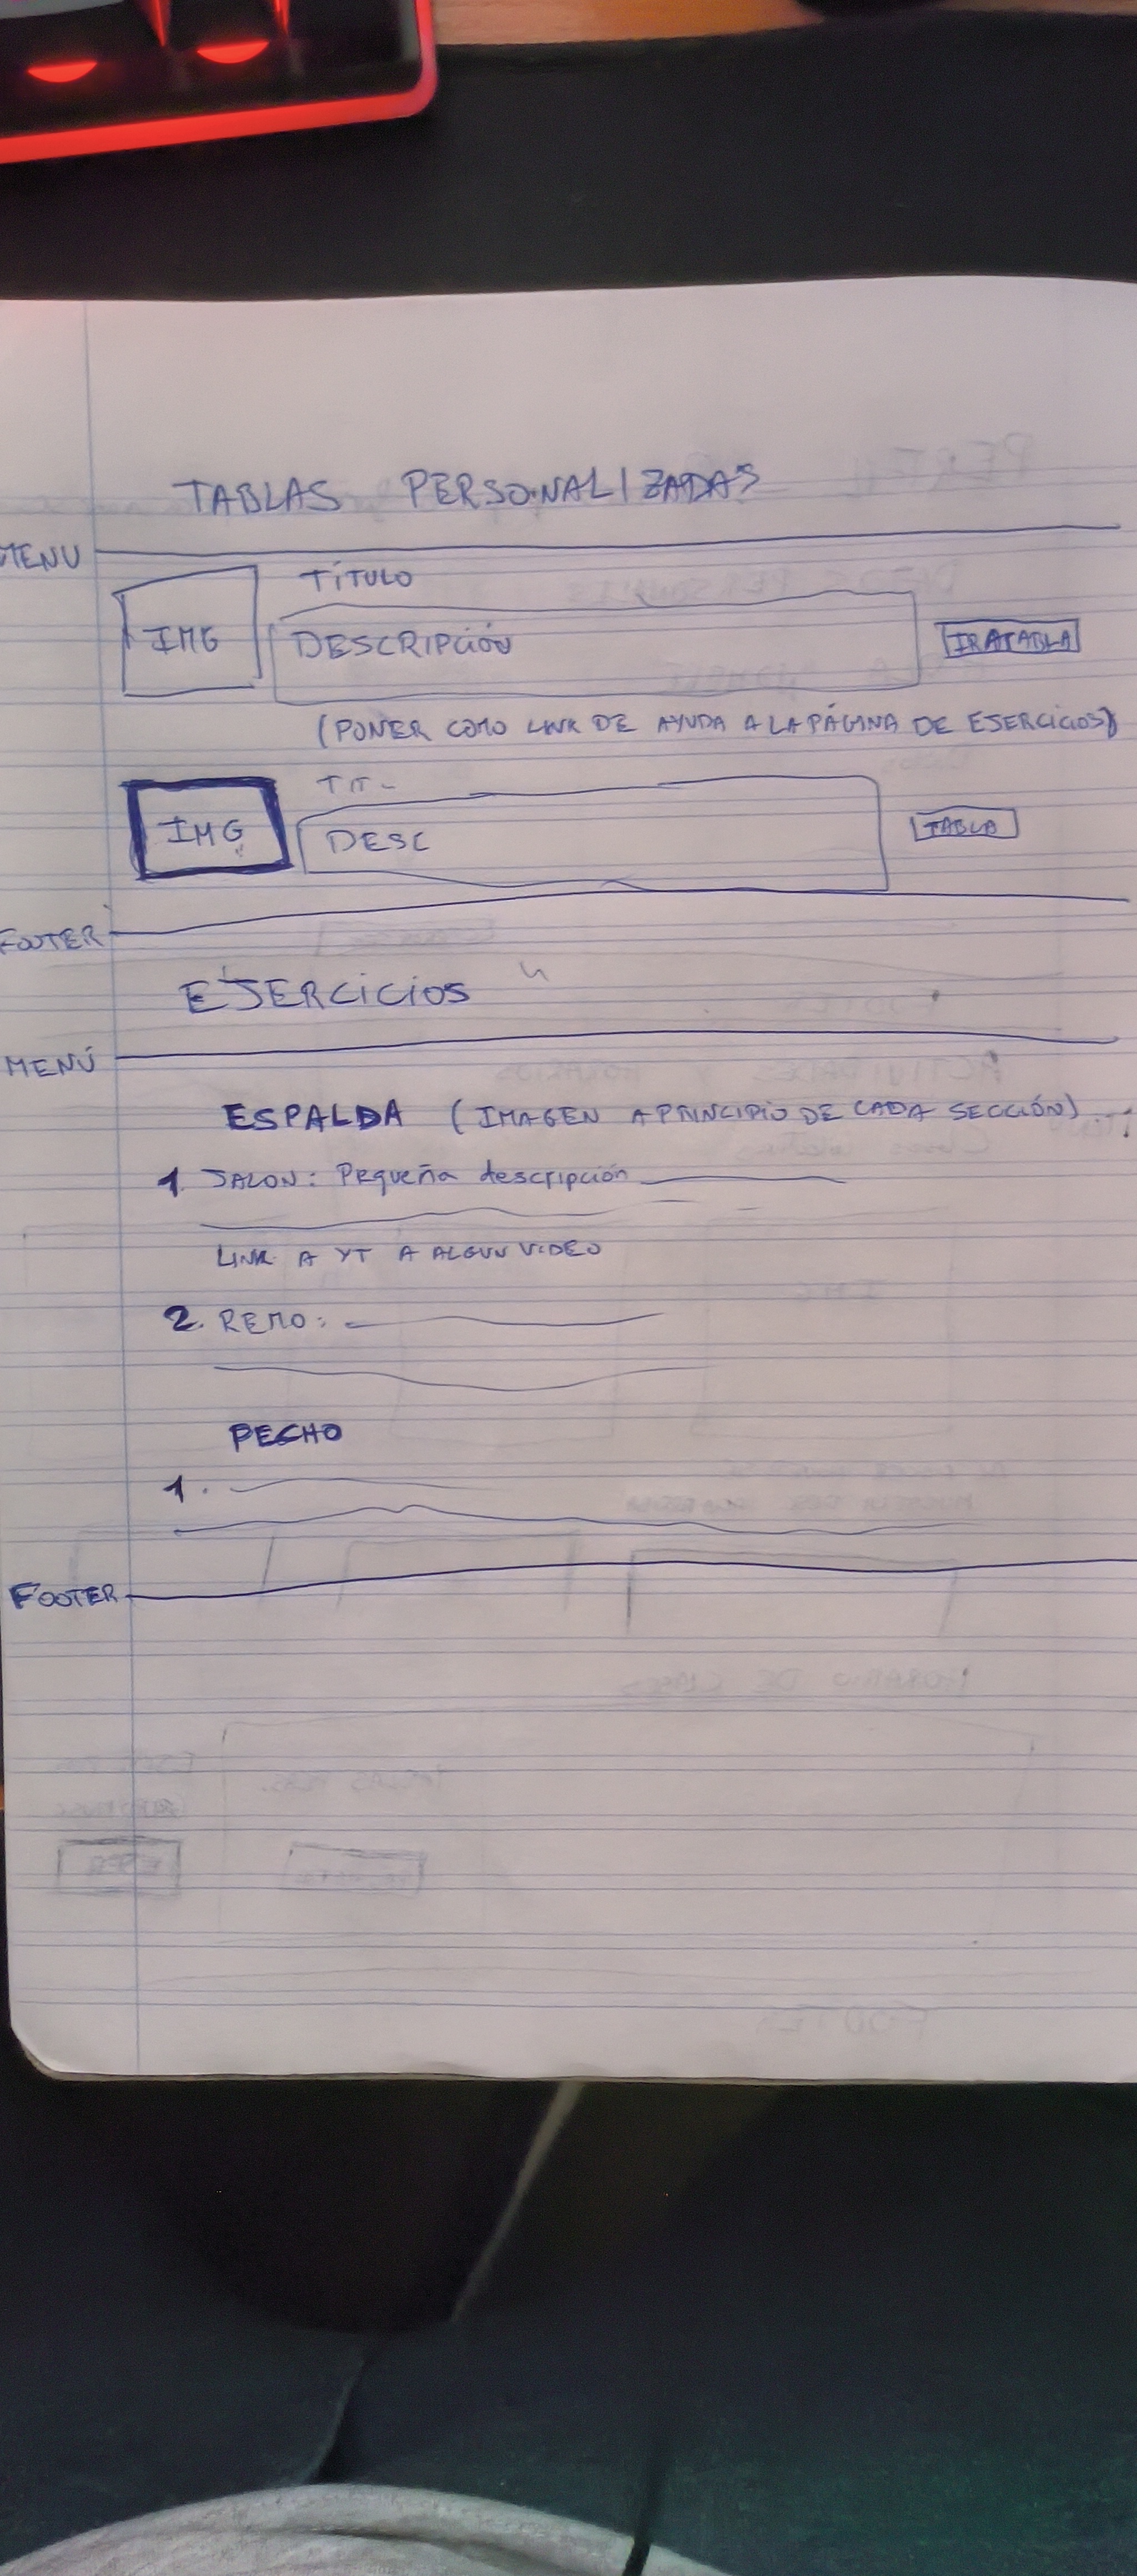 TABLAS PERSONALIZADAS
MENU
TÍTULO
IMG
DESCRIPCIÓN
IR A TABLA
(PONER COMO LINK DE AYUDA A LA PÁGINA DE EJERCICIOS)
TIT-
IMG
DESC
TABLA
FOOTER
EJERCICIOS
MENÚ
ESPALDA (IMAGEN A PRINCIPIO DE CADA SECCIÓN)
1. JALON: Pequeña descripción
LINK A YT A ALGUN VIDEO
2. REMO:
PECHO
1.
FOOTER